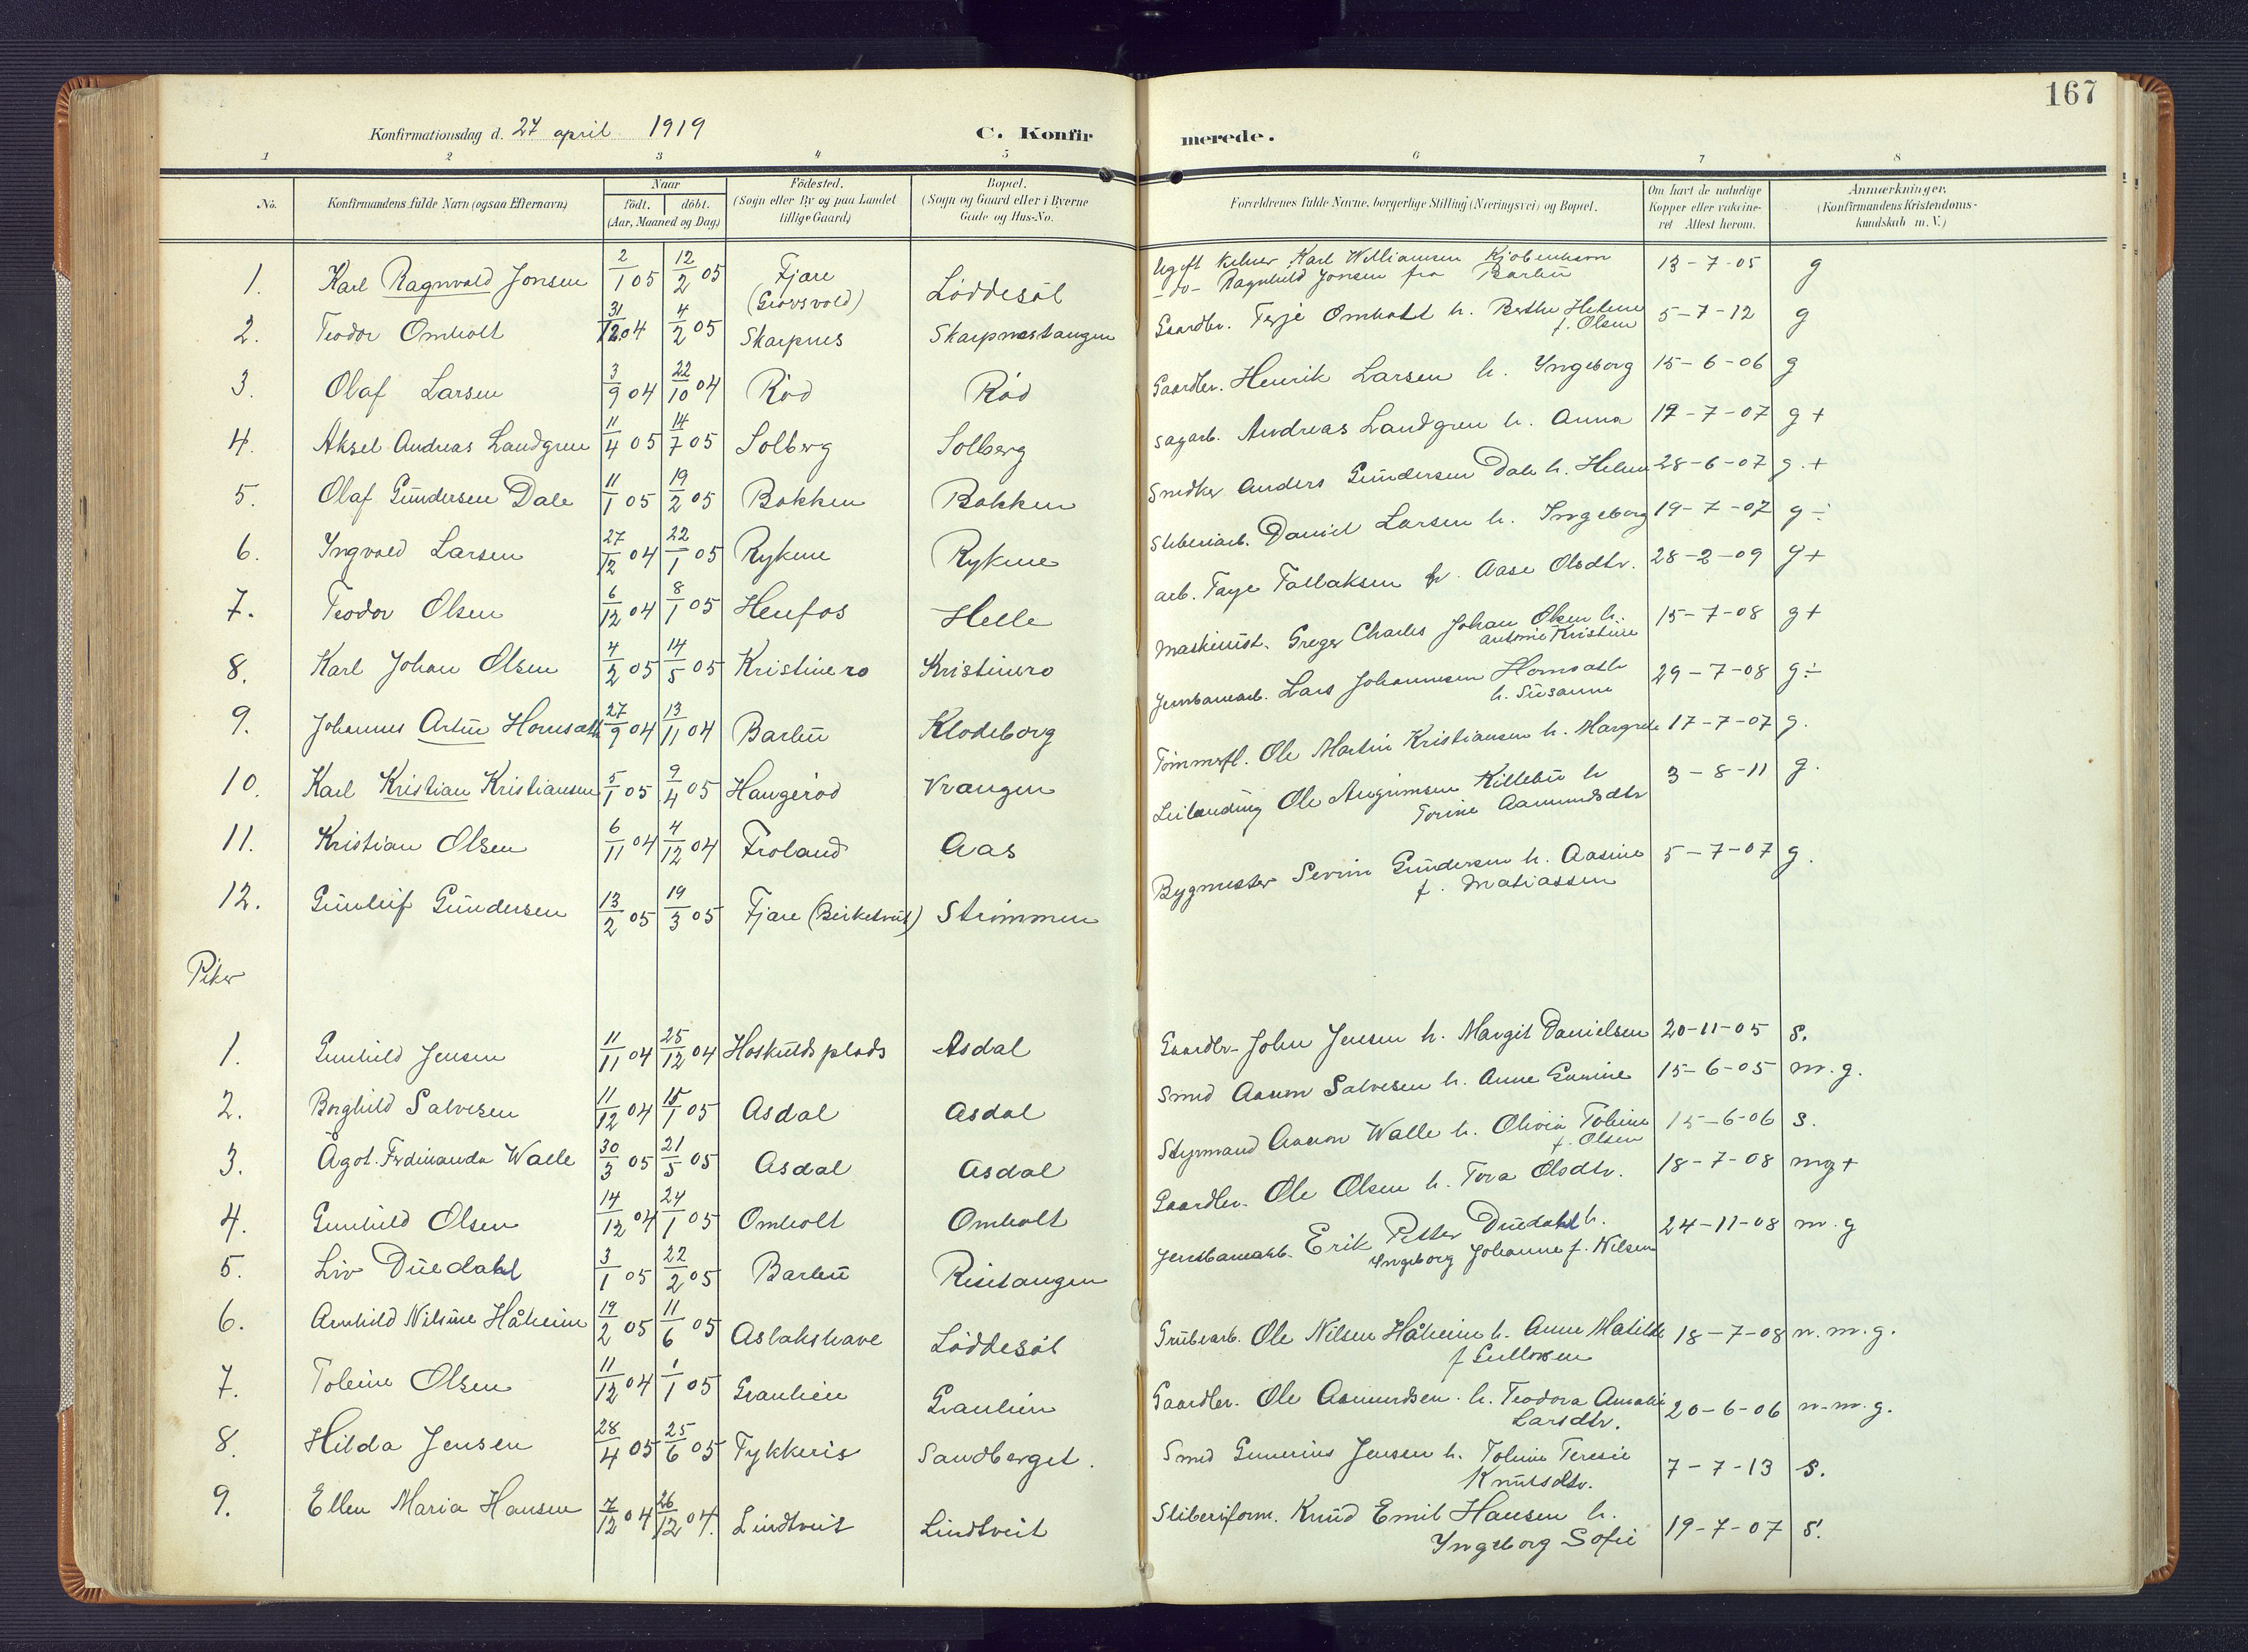 167
Konfirmationsdag d. 27 april 1919 C. Konfir merede.
1 2 3 4 5 6 7 8
No. Konfirmandens fulde Navn (ogsaa Efternavn) Naar födt. döbt. (Aar, Maaned og Dag) Födested. (Sogn eller By og paa Landet tillige Gaard) Bopæl. (Sogn og Gaard eller i Byerne Gade og Hus-No. Forældrenes fulde Navne, borgerlige Stilling (Næringsvei) og Bopæl. Om havt de naturlige Kopper eller vakcineret Attest herom. Anmærkninger. (Konfirmandens Kristendomskundskab m. V.)
1. Karl Ragnvald Jonsen 2/1 05 12/2 05 Fjære (Groosvold) Löddesöl Ugift Kelner Karl Williamsen Kjöbenhavn -do- Ragnhild Jonsen fra Barbu 13-7-05 g
2. Teodor Omholt 31/12 04 4/2 05 Skarpnes Skarpnestangen Gaardbr. Terje Omholt h. Berthe Helene f. Olsen 5-7-12 g
3. Olaf Larsen 3/9 04 22/10 04 Röd Röd Gaardbr. Henrik Larsen h. Yngeborg 15-6-06 g
4. Aksel Andreas Landgren 11/4 05 14/7 05 Solberg Solberg Sagarb. Andreas Landgren h. Anna 19-7-07 g +
5. Olaf Gundersen Dale 11/1 05 19/2 05 Bakken Bakken Snedker Anders Gundersen Dale h. Helene 28-6-07 g. +
6. Yngvald Larsen 27/12 04 22/1 05 Rykene Rykene Sliberiarb. Daniel Larsen h. Ingeborg 19-7-07 g ÷
7. Teodor Olsen 6/12 04 8/1 05 Henfos Helle arb. Taye Tallaksen fr. Aase Olsdtr. 28-2-09 g +
8. Karl Johan Olsen 4/2 05 14/5 05 Kristinero Kristinero Maskinist. Greger Charles Johan Olsen h. Antonie Kristine 15-7-08 g +
9. Johannes Artur Homsath 27/9 04 13/11 04 Barbu Klodeborg Jernbanearb. Lars Johannesen Homsath h. Susanne 29-7-08 g ÷
10. Karl Kristian Kristiansen 5/1 05 9/4 05 Haugeröd Vrangen Tömmerfl. Ole Martin Kristiansen h. Margrete 17-7-07 g.
11. Kristian Olsen 6/11 04 4/12 04 Froland Aas Leilending Ole Angrimsen Killebu h Torine Aamundsdtr 3-8-11 g.
12. Gunleif Gundersen 13/2 05 19/3 05 Fjære (Birketveit) Strömmen Bygmester Sevrin Gundersen h. Aasine f. Matiassen 5-7-07 g.
Piker
1. Gunhild Jensen 11/11 04 25/12 04 Höskulds plads Asdal Gaardbr- John Jensen h. Margit Danielsen 20-11-05 S.
2. Borghild Salvesen 11/12 04 15/1 05 Asdal Asdal Smed Aanon Salvesen h. Anne Gunine 15-6-05 m. g.
3. Ågot. Ferdinanda Walle 30/3 05 21/5 05 Asdal Asdal Styrmand Aanon Walle h. Olivia Tobine f. Olsen 15-6-06 S.
4. Gunhild Olsen 14/12 04 24/1 05 Omholt Omholt Gaardbr. Ole Olsen h. Tora Olsdtr. 18-7-08 mg +
5. Liv Duedahl 3/1 05 22/2 05 Barbu Risetangen Jernbanearb. Erik Petter Duedahl h. Yngeborg Johanne f. Nilsen 24-11-08 m. g
6. Arnhild Nilsine Håheim 19/2 05 11/6 05 Aslakshave Löddesöl Grubearb. Ole Nilsen Håheim h. Anne Matilde f Gullovsen 18-7-08 n. m. g.
7. Tobine Olsen 11/12 04 1/1 05 Granheim Granheim Gaardbr. Ole Aamundsen h. Teodora Amalie Larsdtr. 20-6-06 n. m. g.
8. Hilda Jensen 28/4 05 25/6 05 Tykkeris Sandberget. Smed Gunerius Jensen h. Tobine Teresie Knutsdtr. 7-7-13 S.
9. Ellen Maria Hansen 7/12 04 26/12 04. Lindtveit Lindtveit Sliberiform. Knud Emil Hansen h. Yngeborg Sofie 19-7-07 S.